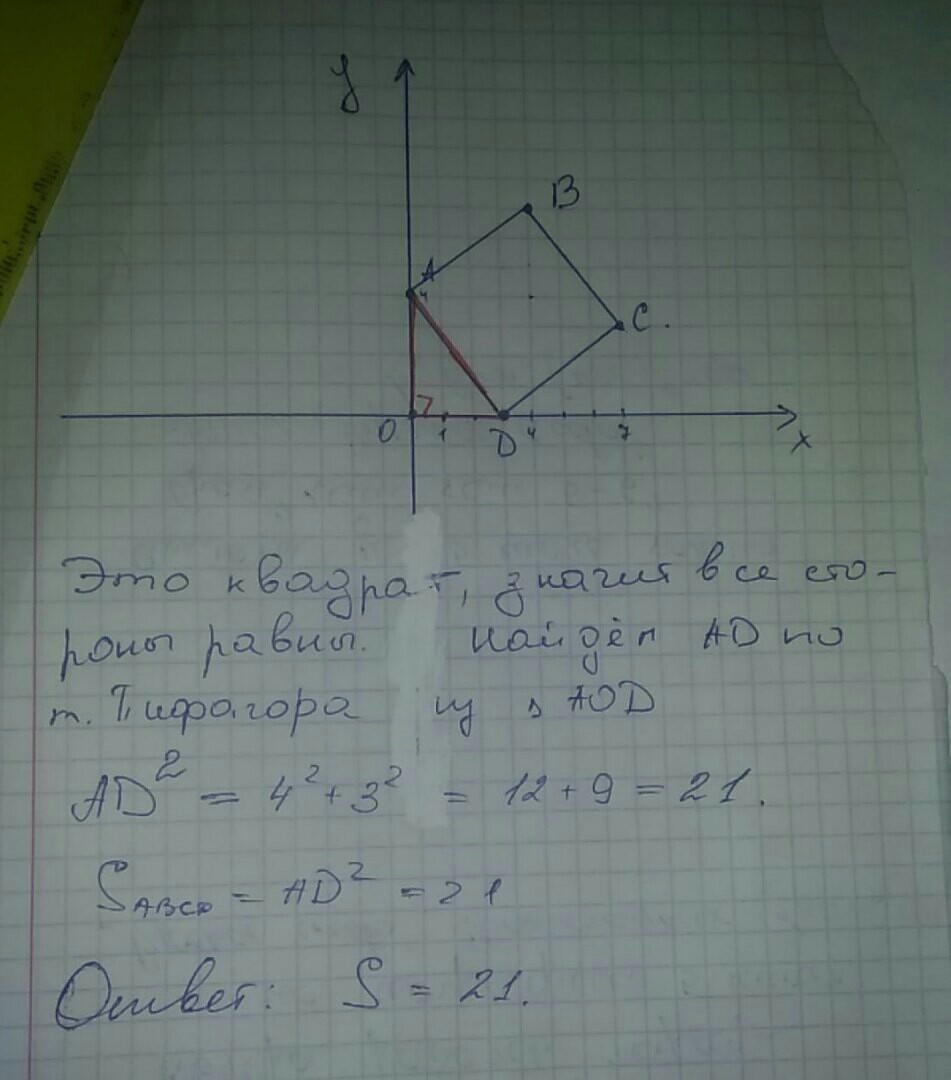 y
B
A
4
C.
O 1 D 4 7 x
Это квадрат, значит все сто-
роны равны. Найдём AD по
т. Пифагора из Δ AOD
AD² = 4² + 3² = 12 + 9 = 21.
S ABCD = AD² = 21
Ответ: S = 21.